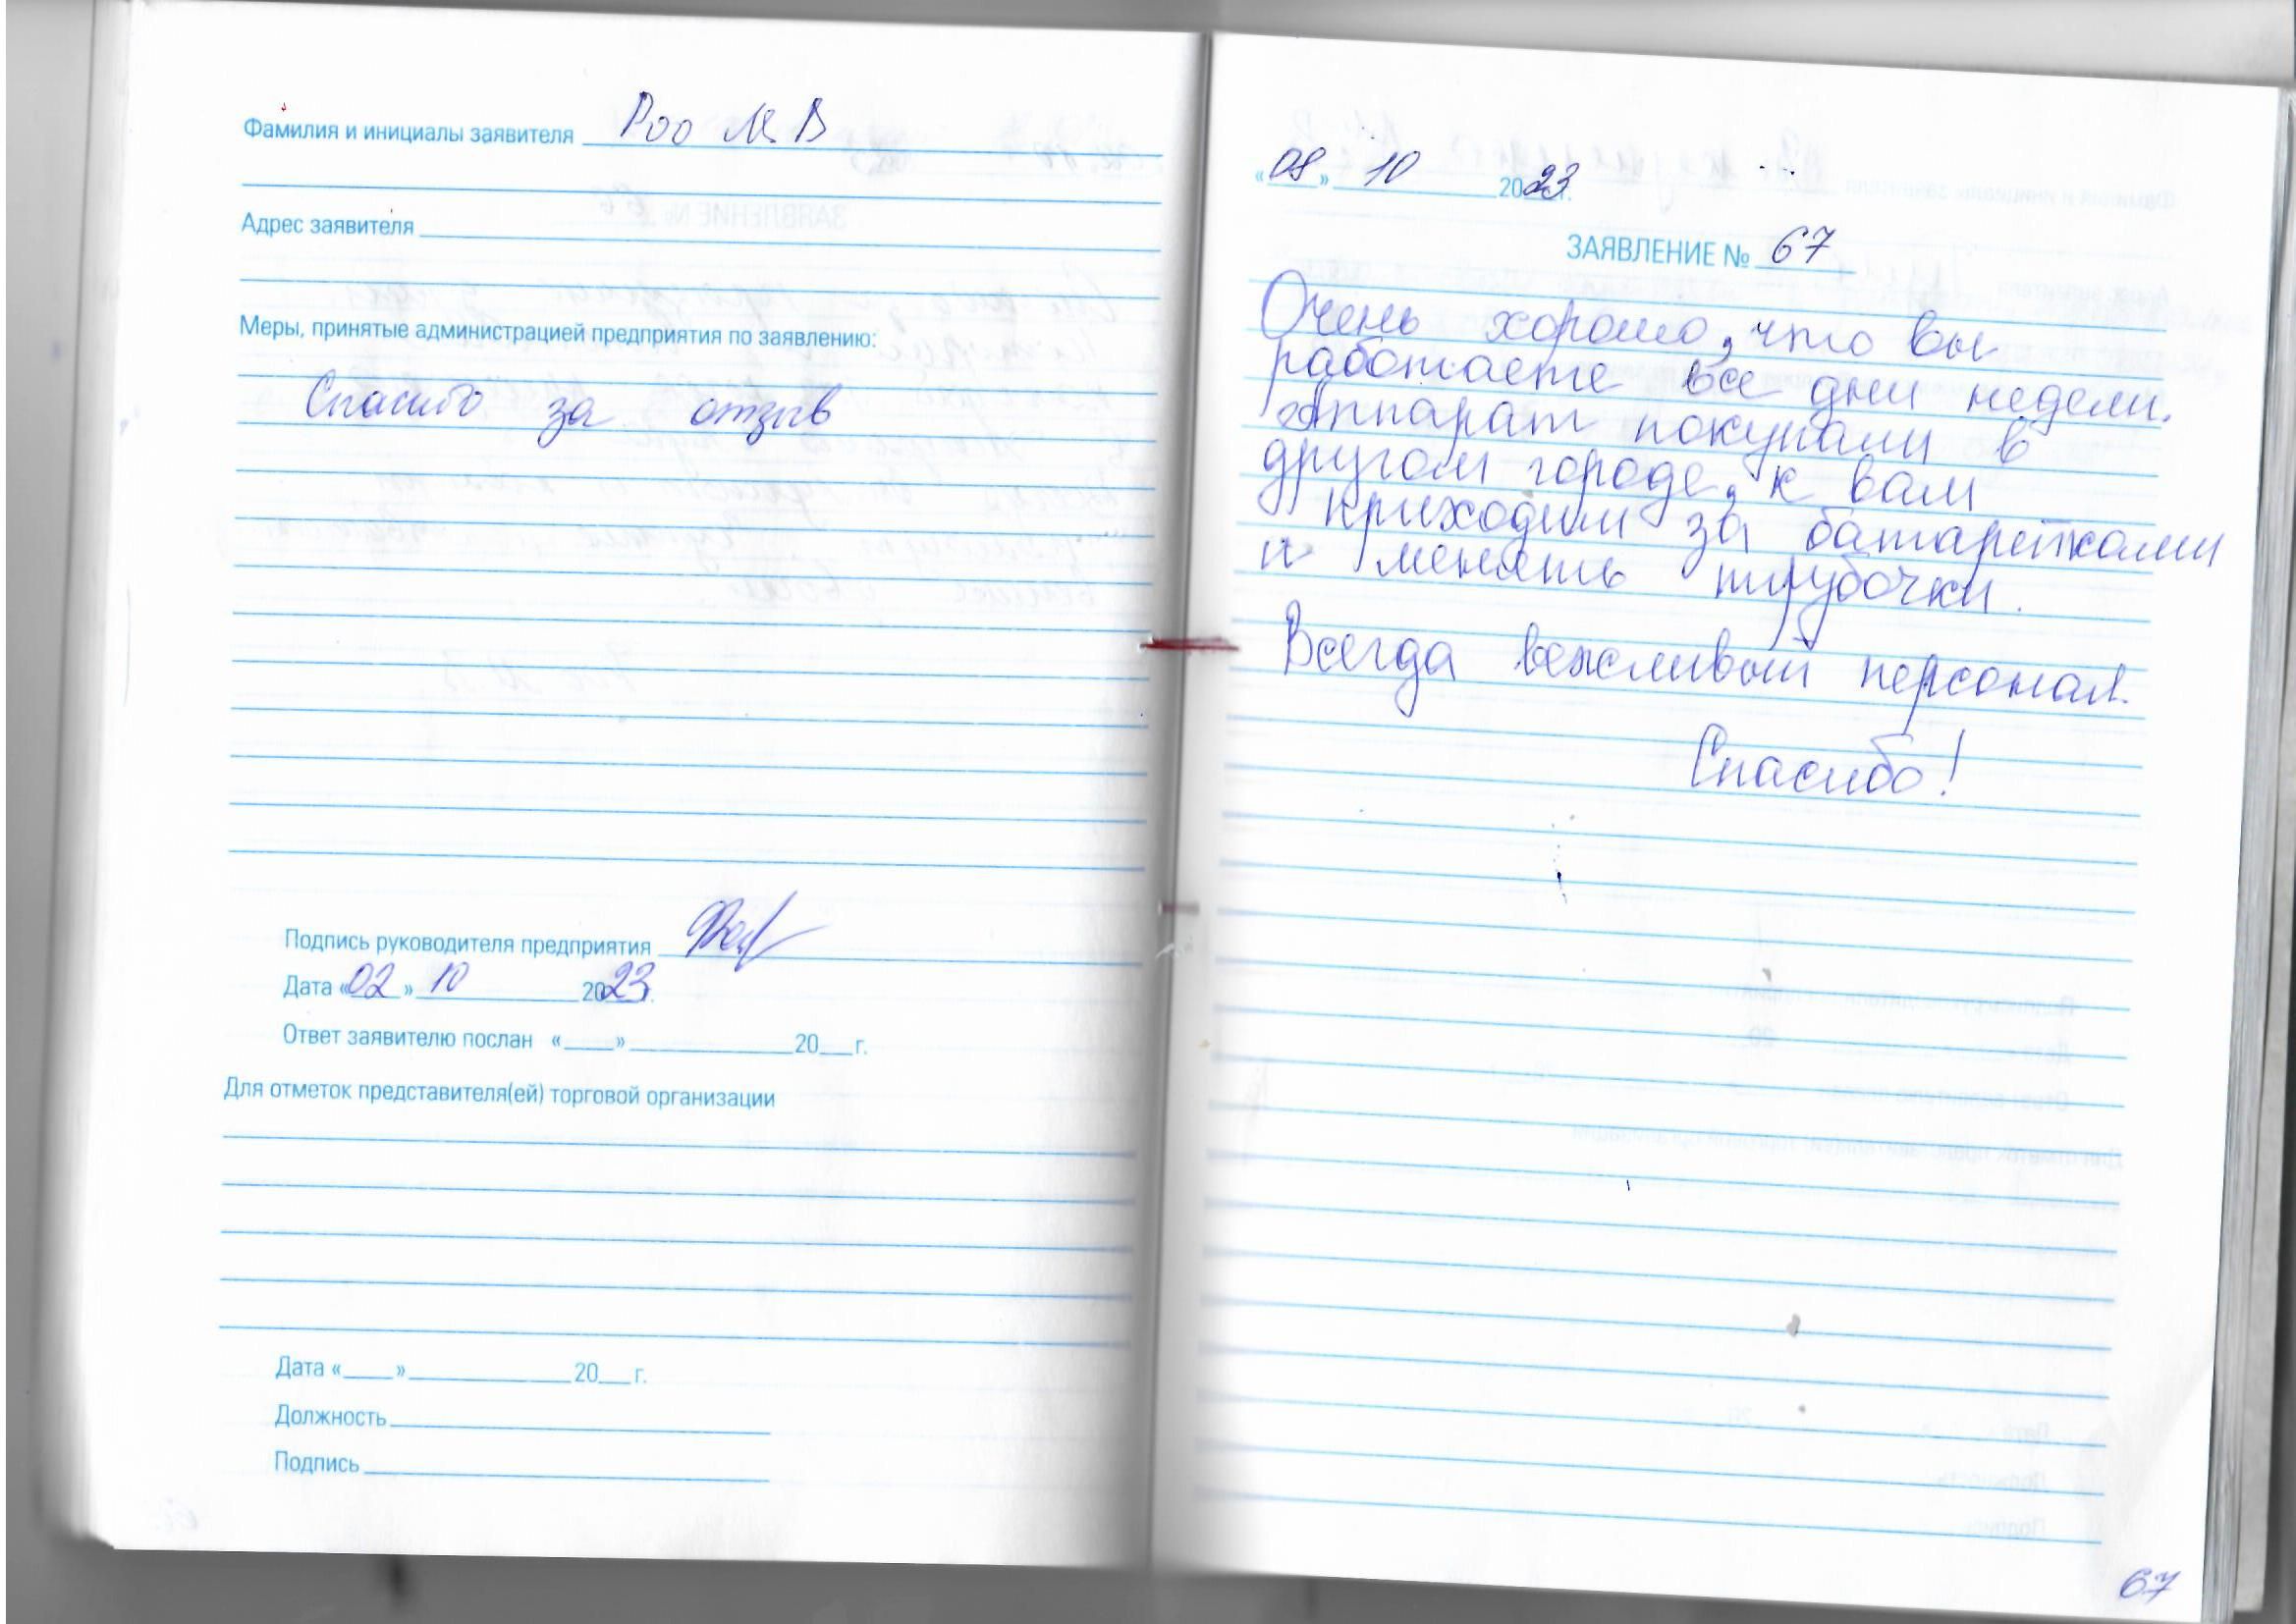 Фамилия и инициалы заявителя Роо М В
Адрес заявителя
Меры, принятые администрацией предприятия по заявлению:
Спасибо за отзыв
Подпись руководителя предприятия
Дата «02» 10 2023г.
Ответ заявителю послан «____»____________20___г.
Для отметок представителя(ей) торговой организации
Дата «____»____________20___г.
Должность
Подпись
«08» 10 2023г.
ЗАЯВЛЕНИЕ № 67
Очень хорошо, что вы
работаете все дни недели.
Аппарат покупали в
другом городе, к вам
приходим за батарейками
и менять трубочки.
Всегда вежливый персонал.
Спасибо!
67